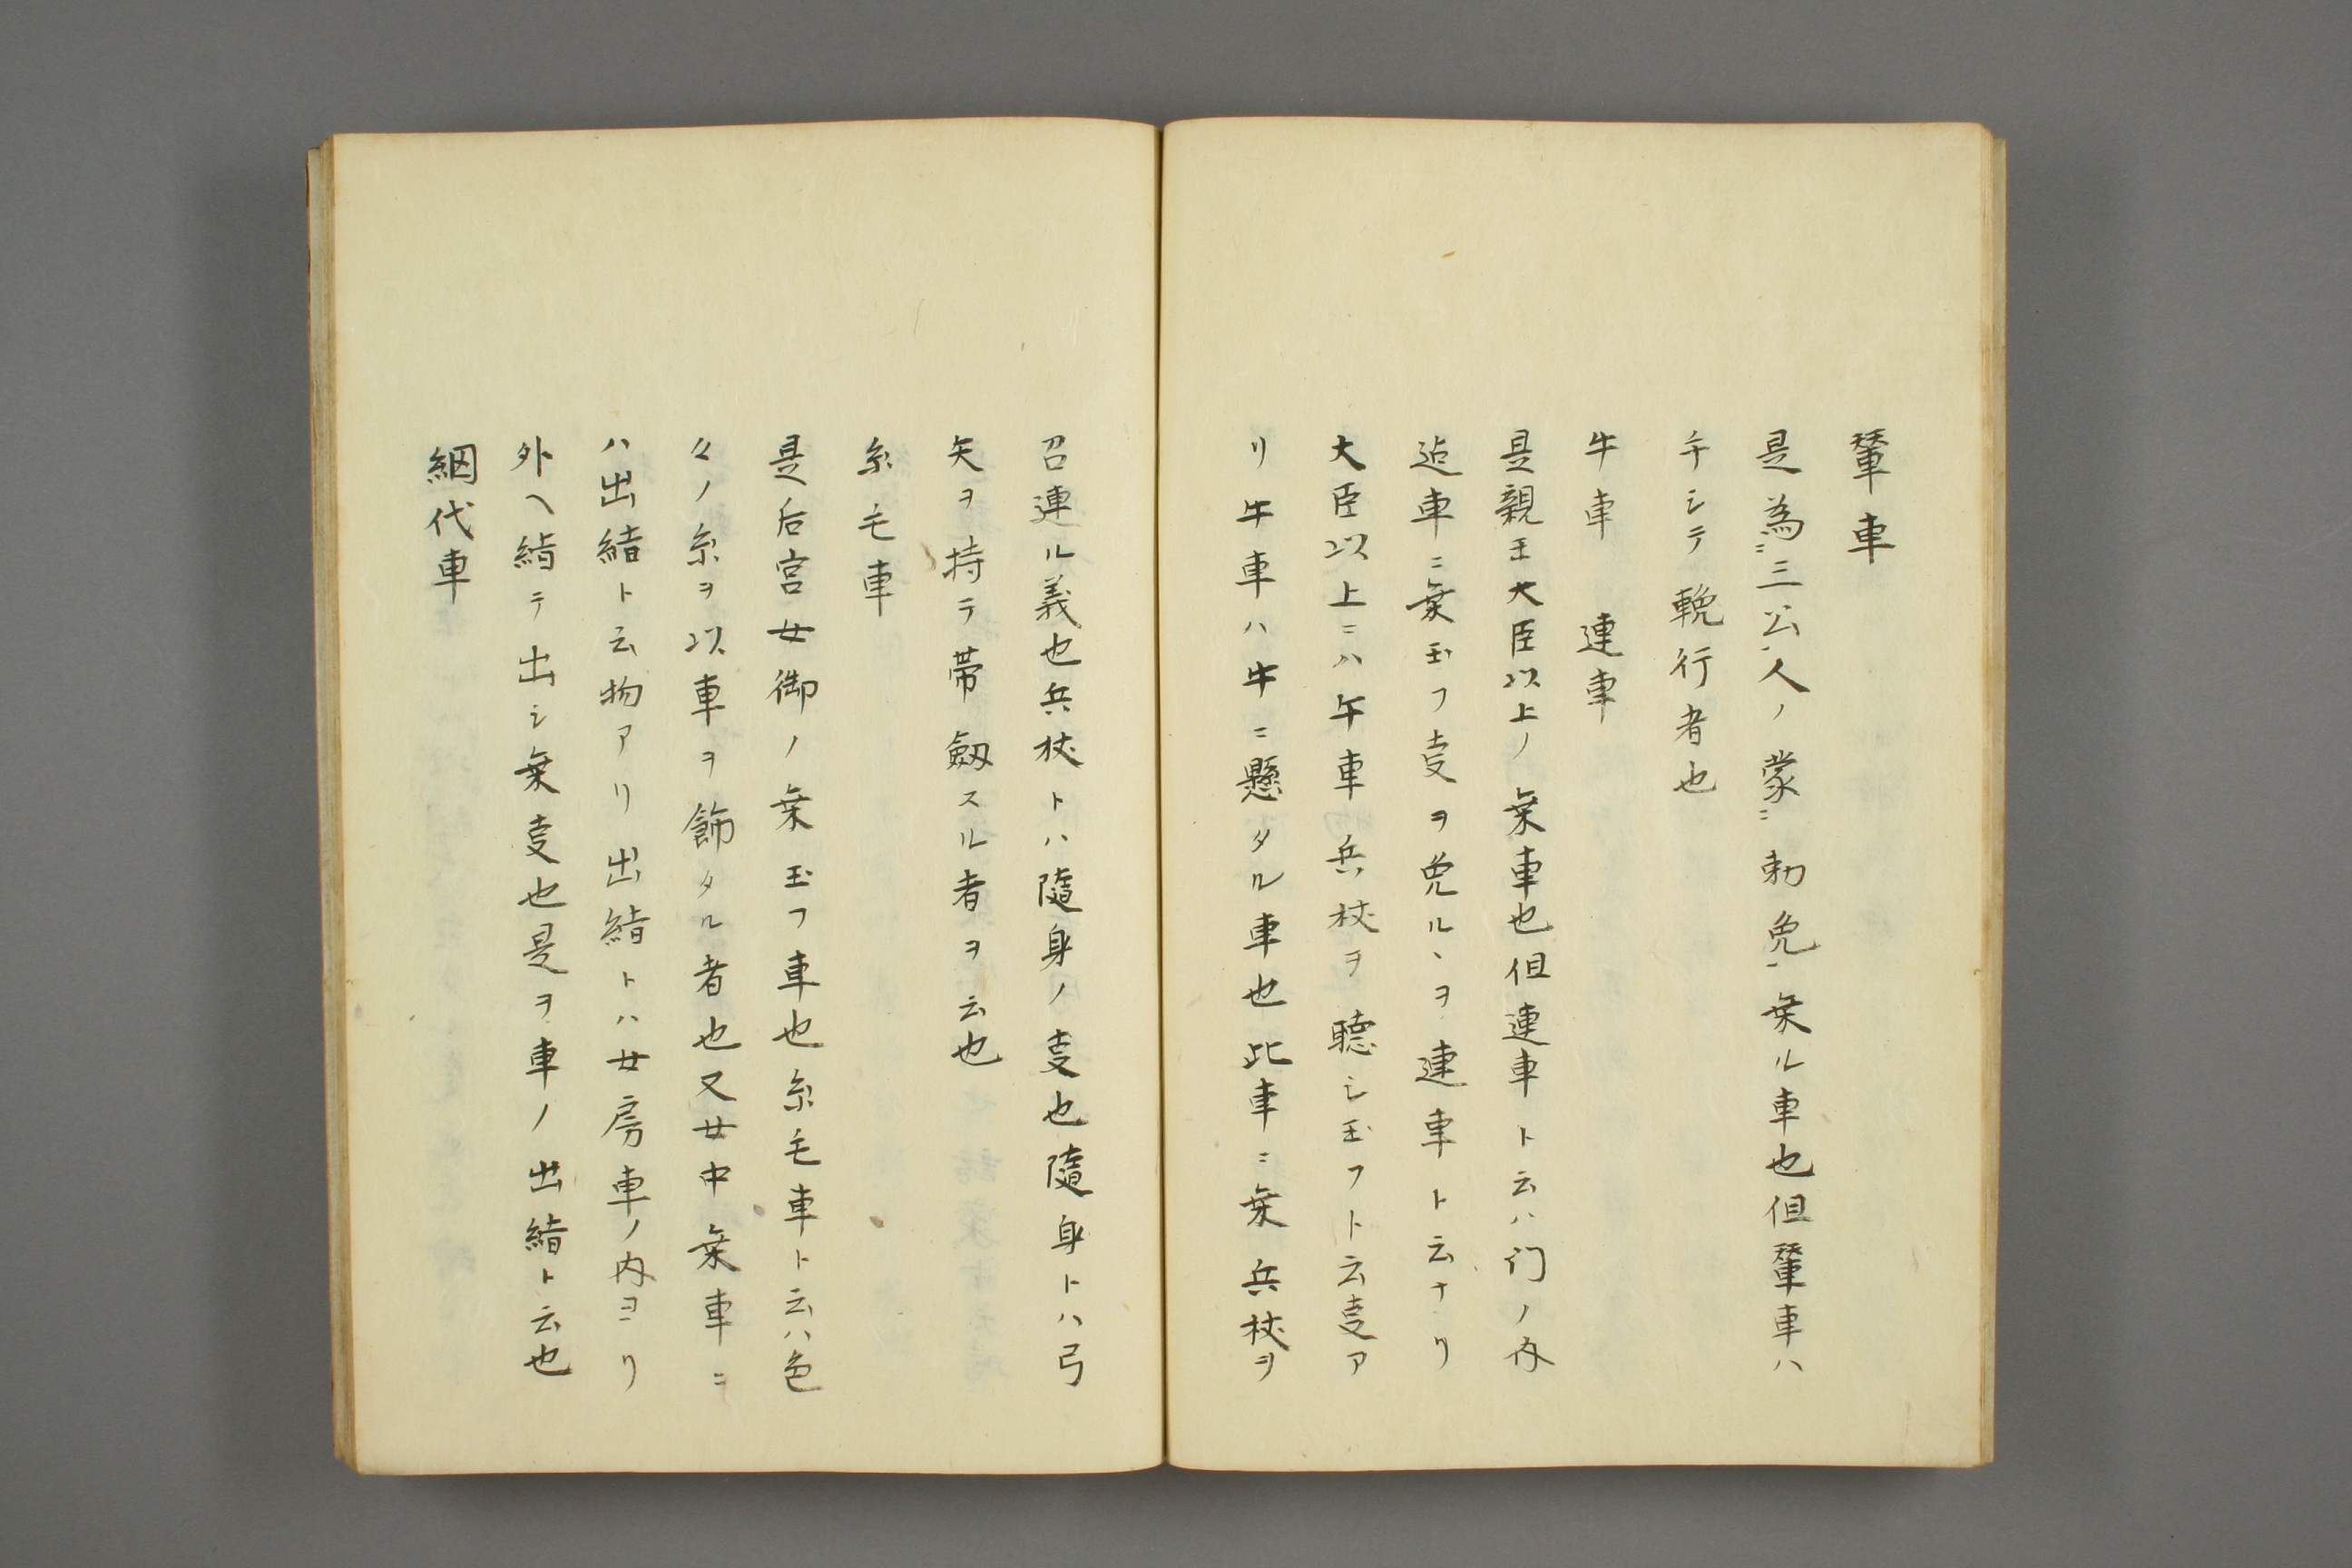 輦車
是為ニ三公人ノ蒙ニ勅免一乗ル車也但輦車ハ
手シテ輓行者也
牛車　連車
是親王大臣以上ノ乗車也但連車ト云ハ门ノ内
迠車ニ乗玉フ㕝ヲ免ルヽヲ連車ト云ナリ
大臣以上ニハ午車兵杖ヲ聴シ玉フト云㕝ア
リ牛車ハ牛ニ懸タル車也此車ニ乗兵杖ヲ
召連ル義也兵杖トハ隨身ノ㕝也隨身トハ弓
矢ヲ持テ帯劔スル者ヲ云也
糸毛車
是后宮女御ノ乗玉フ車也糸毛車ト云ハ色
々ノ糸ヲ以車ヲ飾タル者也又女中乗車ニ
ハ出絹ト云物アリ出絹トハ女房車ノ内ヨリ
外ヘ絹テ出シ乗㕝也是ヲ車ノ出絹ト云也
網代車